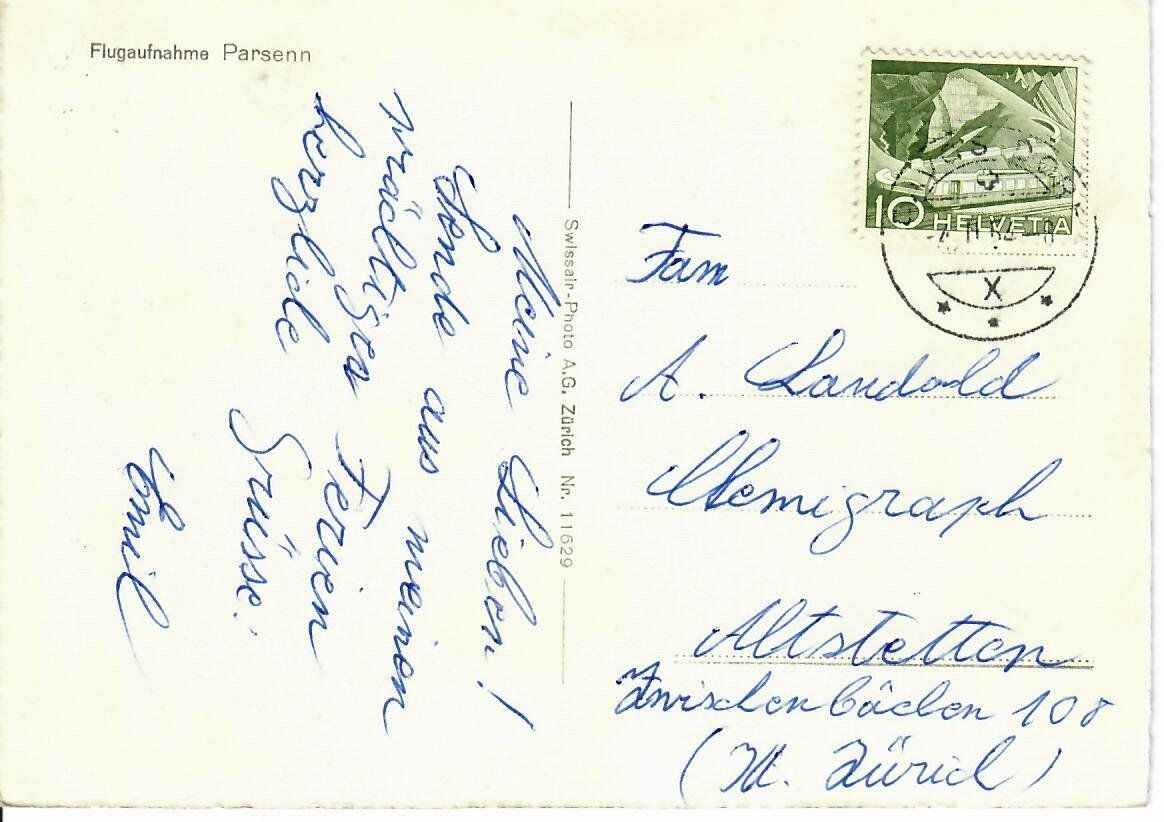 Flugaufnahme Parsenn
Meine Lieben!
Sende aus meinen
prächtigen Ferien
herzliche Grüsse.
Emil
Swissair-Photo A.G. Zürich Nr. 11629
10 HELVETIA
X
Fam
A. Landold
Altstetten
Zwischenbächen 108
(Kt. Zürich)